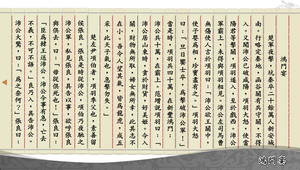 鴻門宴
楚軍夜擊，坑秦卒二十餘萬人新安城
南。行略定秦地。函谷關有兵守關，不得
入。又聞沛公已破咸陽，項羽大怒，使當
陽君等擊關。項羽遂入，至於戲西。沛公
軍霸上，未得與項羽相見。沛公左司馬曹
無傷使人言於項羽曰：「沛公欲王關中，
使子嬰為相，珍寶盡有之。」項羽大怒，
曰：「旦日饗士卒，為擊破沛公軍！」
當是時，項羽兵四十萬，在新豐鴻門；
沛公兵十萬，在霸上。范增說項羽曰：「
沛公居山東時，貪於財貨，好美姬。今入
關，財物無所取，婦女無所幸，此其志不
在小。吾令人望其氣，皆為龍虎，成五
采，此天子氣也。急擊勿失。」
楚左尹項伯者，項羽季父也，素善留
侯張良。張良是時從沛公，項伯乃夜馳之
沛公軍，私見張良，具告以事，欲呼張良
與俱去。曰：「毋從俱死也。」張良曰：
「臣為韓王送沛公，沛公今事有急，亡去
不義，不可不語。」良乃入，具告沛公。
沛公大驚，曰：「為之奈何？」張良曰：
鴻門宴